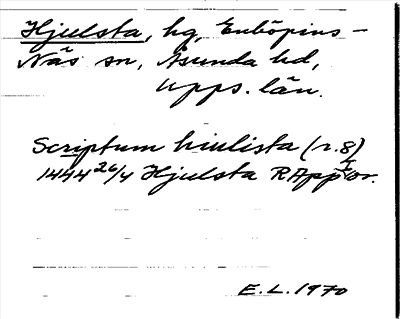 Hjulsta, hg, Enköpings-
Näs sn, Åsunda hd,
Upps. län.
Scriptum hiulista (r. 8)
1444 26/4 Hjulsta RAppI or.
E.L. 1970